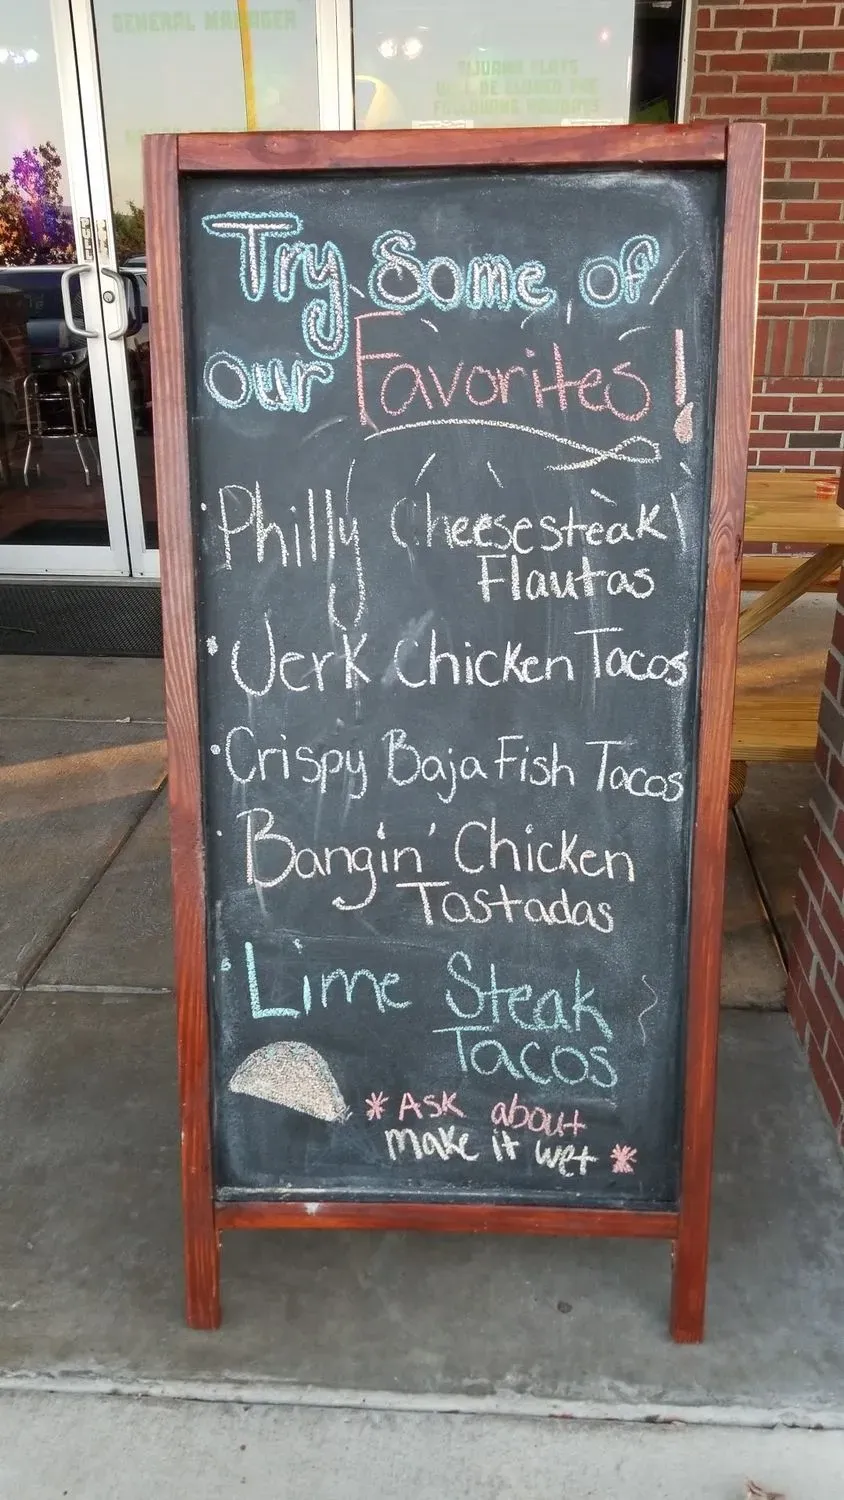 GENERAL MANAGER
TIJUANA FLATS
WILL BE CLOSED THE
FOLLOWING HOLIDAYS
Try Some of
our Favorites!
• Philly Cheesesteak
Flautas
• Jerk Chicken Tacos
• Crispy Baja Fish Tacos
• Bangin' Chicken
Tostadas
• Lime Steak
Tacos
* ASK about
make it wet *